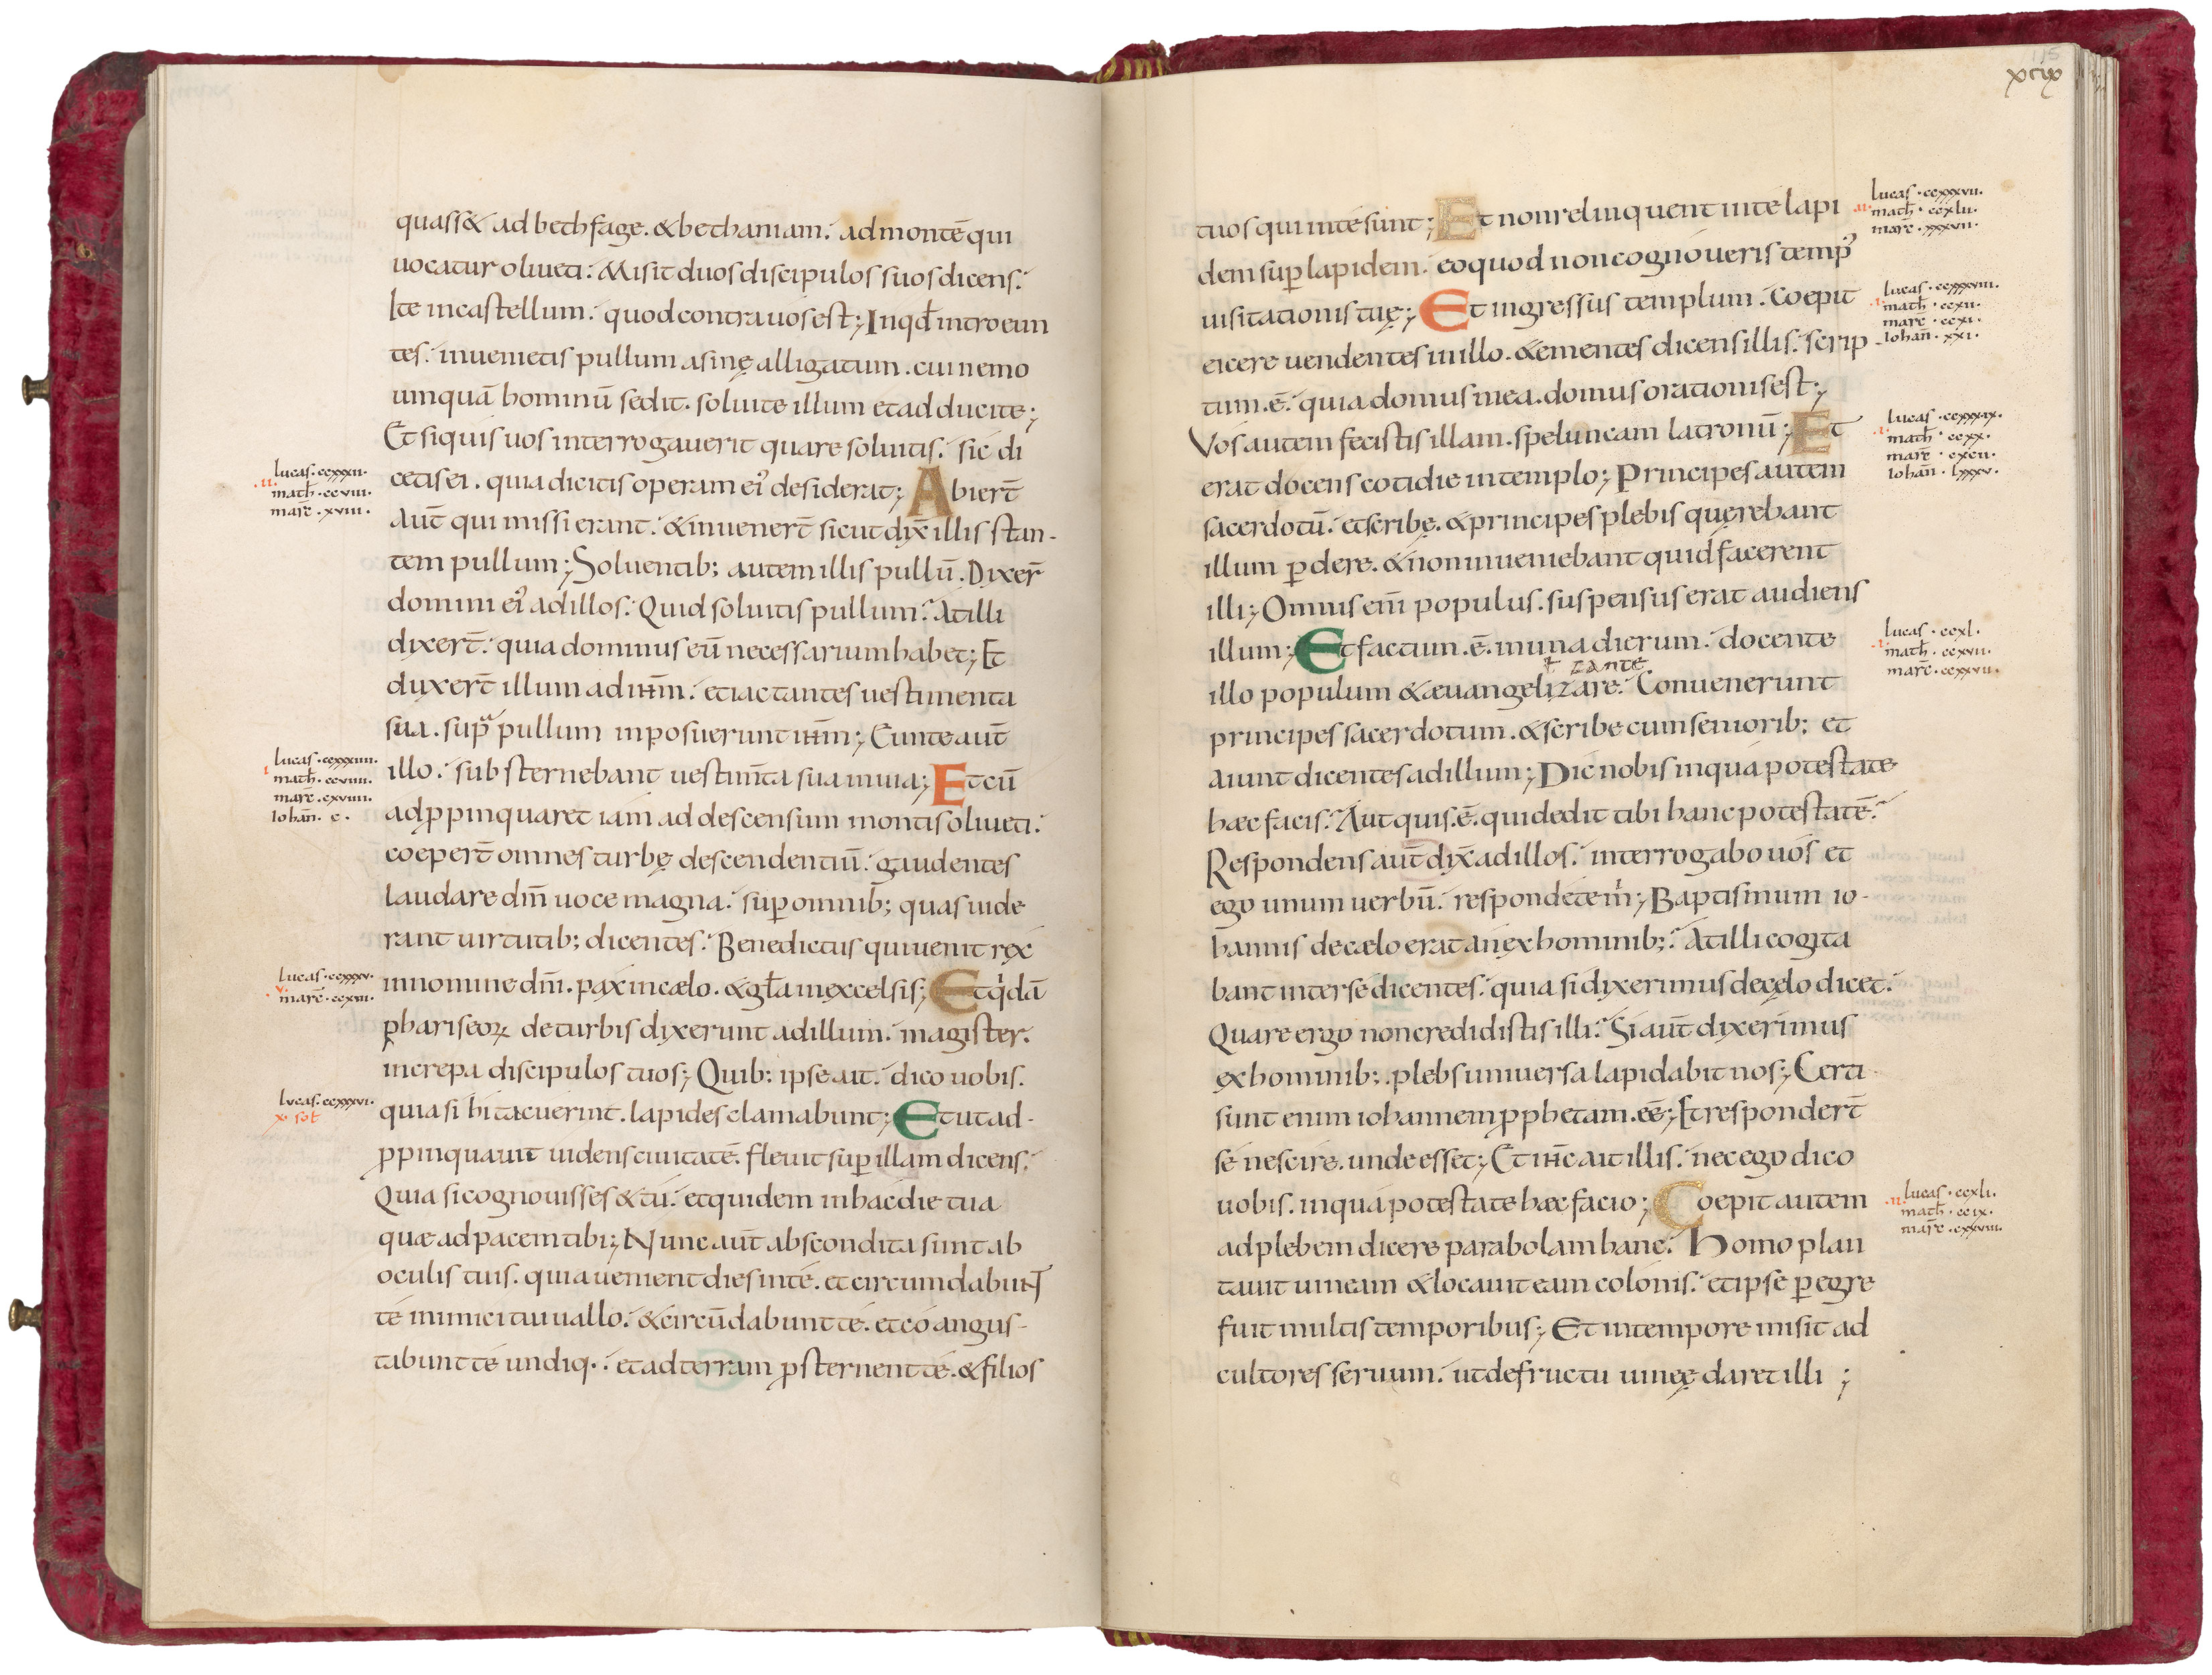 quass& ad bethfage. & bethaniam. ad montē qui
uocatur oliueti. Misit duos discipulos suos dicens.
Ite in castellum. quod contra uos est; In qd̄ introeun
tes. inuenietis pullum asinę alligatum. cui nemo
umquā hominū sedit. soluite illum et adducite;
Et si quis uos interrogauerit quare soluitis. sic di
lucas. ccxxxii.
.ii. math̄. ccviii.
marc̄. xviii.
cetis ei. quia dicitis operam ei' desiderat; Abiert̄
aut̄ qui missi erant. & inuenert̄ sicut dix̄ illis stan-
tem pullum; Soluentib; autem illis pullū. Dixer̄
domini ei' ad illos. Quid soluitis pullum. At illi
dixert̄. quia dominus eū necessarium habet; Et
duxert̄ illum ad ihm̄. et iactantes uestimenta
sua. supᵃ pullum inposuerunt ihm̄; Eunte aut̄
lucas. ccxxxiiii.
i math̄. ccviiii.
marc̄. cxviiii.
Iohan̄. c.
illo. substernebant uestim̄ta sua in uia; Et cū
adꝓpinquaret iam ad descensum montis oliueti.
coepert̄ omnes turbę descendentiū. gaudentes
laudare dm̄ uoce magna. suꝑ omnib; quas uide
rant uirtutib; dicentes. Benedictus qui uenit rex
lucas. ccxxxv.
.v. marc̄. ccxiii.
in nomine dn̄i. pax in cælo. & gl̄a in excelsis; Et qⁱdā
phariseoꝝ de turbis dixerunt ad illum. magister.
increpa discipulos tuos; Quib: ipse ait. dico uobis.
lucas. ccxxxvi.
x. sol̄
quia si hi tacuerint. lapides clamabunt; Et ut ad-
ꝓpinquauit uidens ciuitatē. fleuit suꝑ illam dicens.
Quia si cognouisses & tú. et quidem in hac die tua
quæ ad pacem tibi; Nunc aut̄ abscondita sunt ab
oculis tuis. quia uenient dies in té. et circumdabunt
té inimici tui uallo. & circūdabunt té. et coangus-
tabunt té undiq.. et ad terram ꝓsternent té. & filios
115
xcix
tuos qui in té sunt; Et non relinquent in te lapi
lucas. ccxxxvii.
.ii. math̄. ccxlii.
marc. xxxvii.
dem suꝑ lapidem. eo quod non cognoueris temp'
uisitationis tuę; Et ingressus templum. Coepit
lucas. ccxxxviii.
.i. math̄. ccxii.
marc̄. ccxi.
Iohan̄. xxi.
eicere uendentes in illo. & ementes dicens illis. scrip-
tum. ē. quia domus mea. domus orationis est;
Vos autem fecistis illam. speluncam latronū; Et
lucas. ccxxxix.
.i. math̄. ccxx.
marc̄. cxcii.
Iohan̄. lxxxv.
erat docens cotidie in templo; Principes autem
sacerdotū. et scribę. & principes plebis quęrebant
illum ꝑdere. & non inueniebant quid facerent
illi; Omnis em̄ populus. suspensus erat audiens
illum; Et factum. ē. in una dierum. docente
lucas. ccxl.
.i. math̄. ccxvii.
marc̄. ccxxvii.
ł zante
illo populum & æuangelizare. Conuenerunt
principes sacerdotum. & scribe cum seniorib; et
aiunt dicentes ad illum; Dic nobis in qua potestate
hæc facis. Aut quis. ē. qui dedit tibi hanc potestatē.
Respondens aut̄ dix̄ ad illos. interrogabo uós et
ego unum uerbū. respondete mⁱ; Baptismum io-
hannis de cælo erat an ex hominib;. At illi cogita
bant inter sé dicentes. quia si dixerimus de cęlo dicet.
Quare ergo non credidistis illi. Si aut̄ dixerimus
ex hominib;. plebs uniuersa lapidabit nos; Certi
sunt enim iohannem ꝓphetam. eē; Et respondert̄
sé nescire. unde esset; Et ih̄c ait illis. nec ego dico
uobis. in qua potestate hæc facio; Coepit autem
lucas. ccxli.
.ii. math̄. ccix.
marc̄. cxxviii.
ad plebem dicere parabolam hanc. Homo plan
tauit uineam & locauit eam colonis. et ipse ꝑegre
fuit multis temporibus; Et in tempore misit ad
cultores seruum. ut de fructu uineę daret illi ;